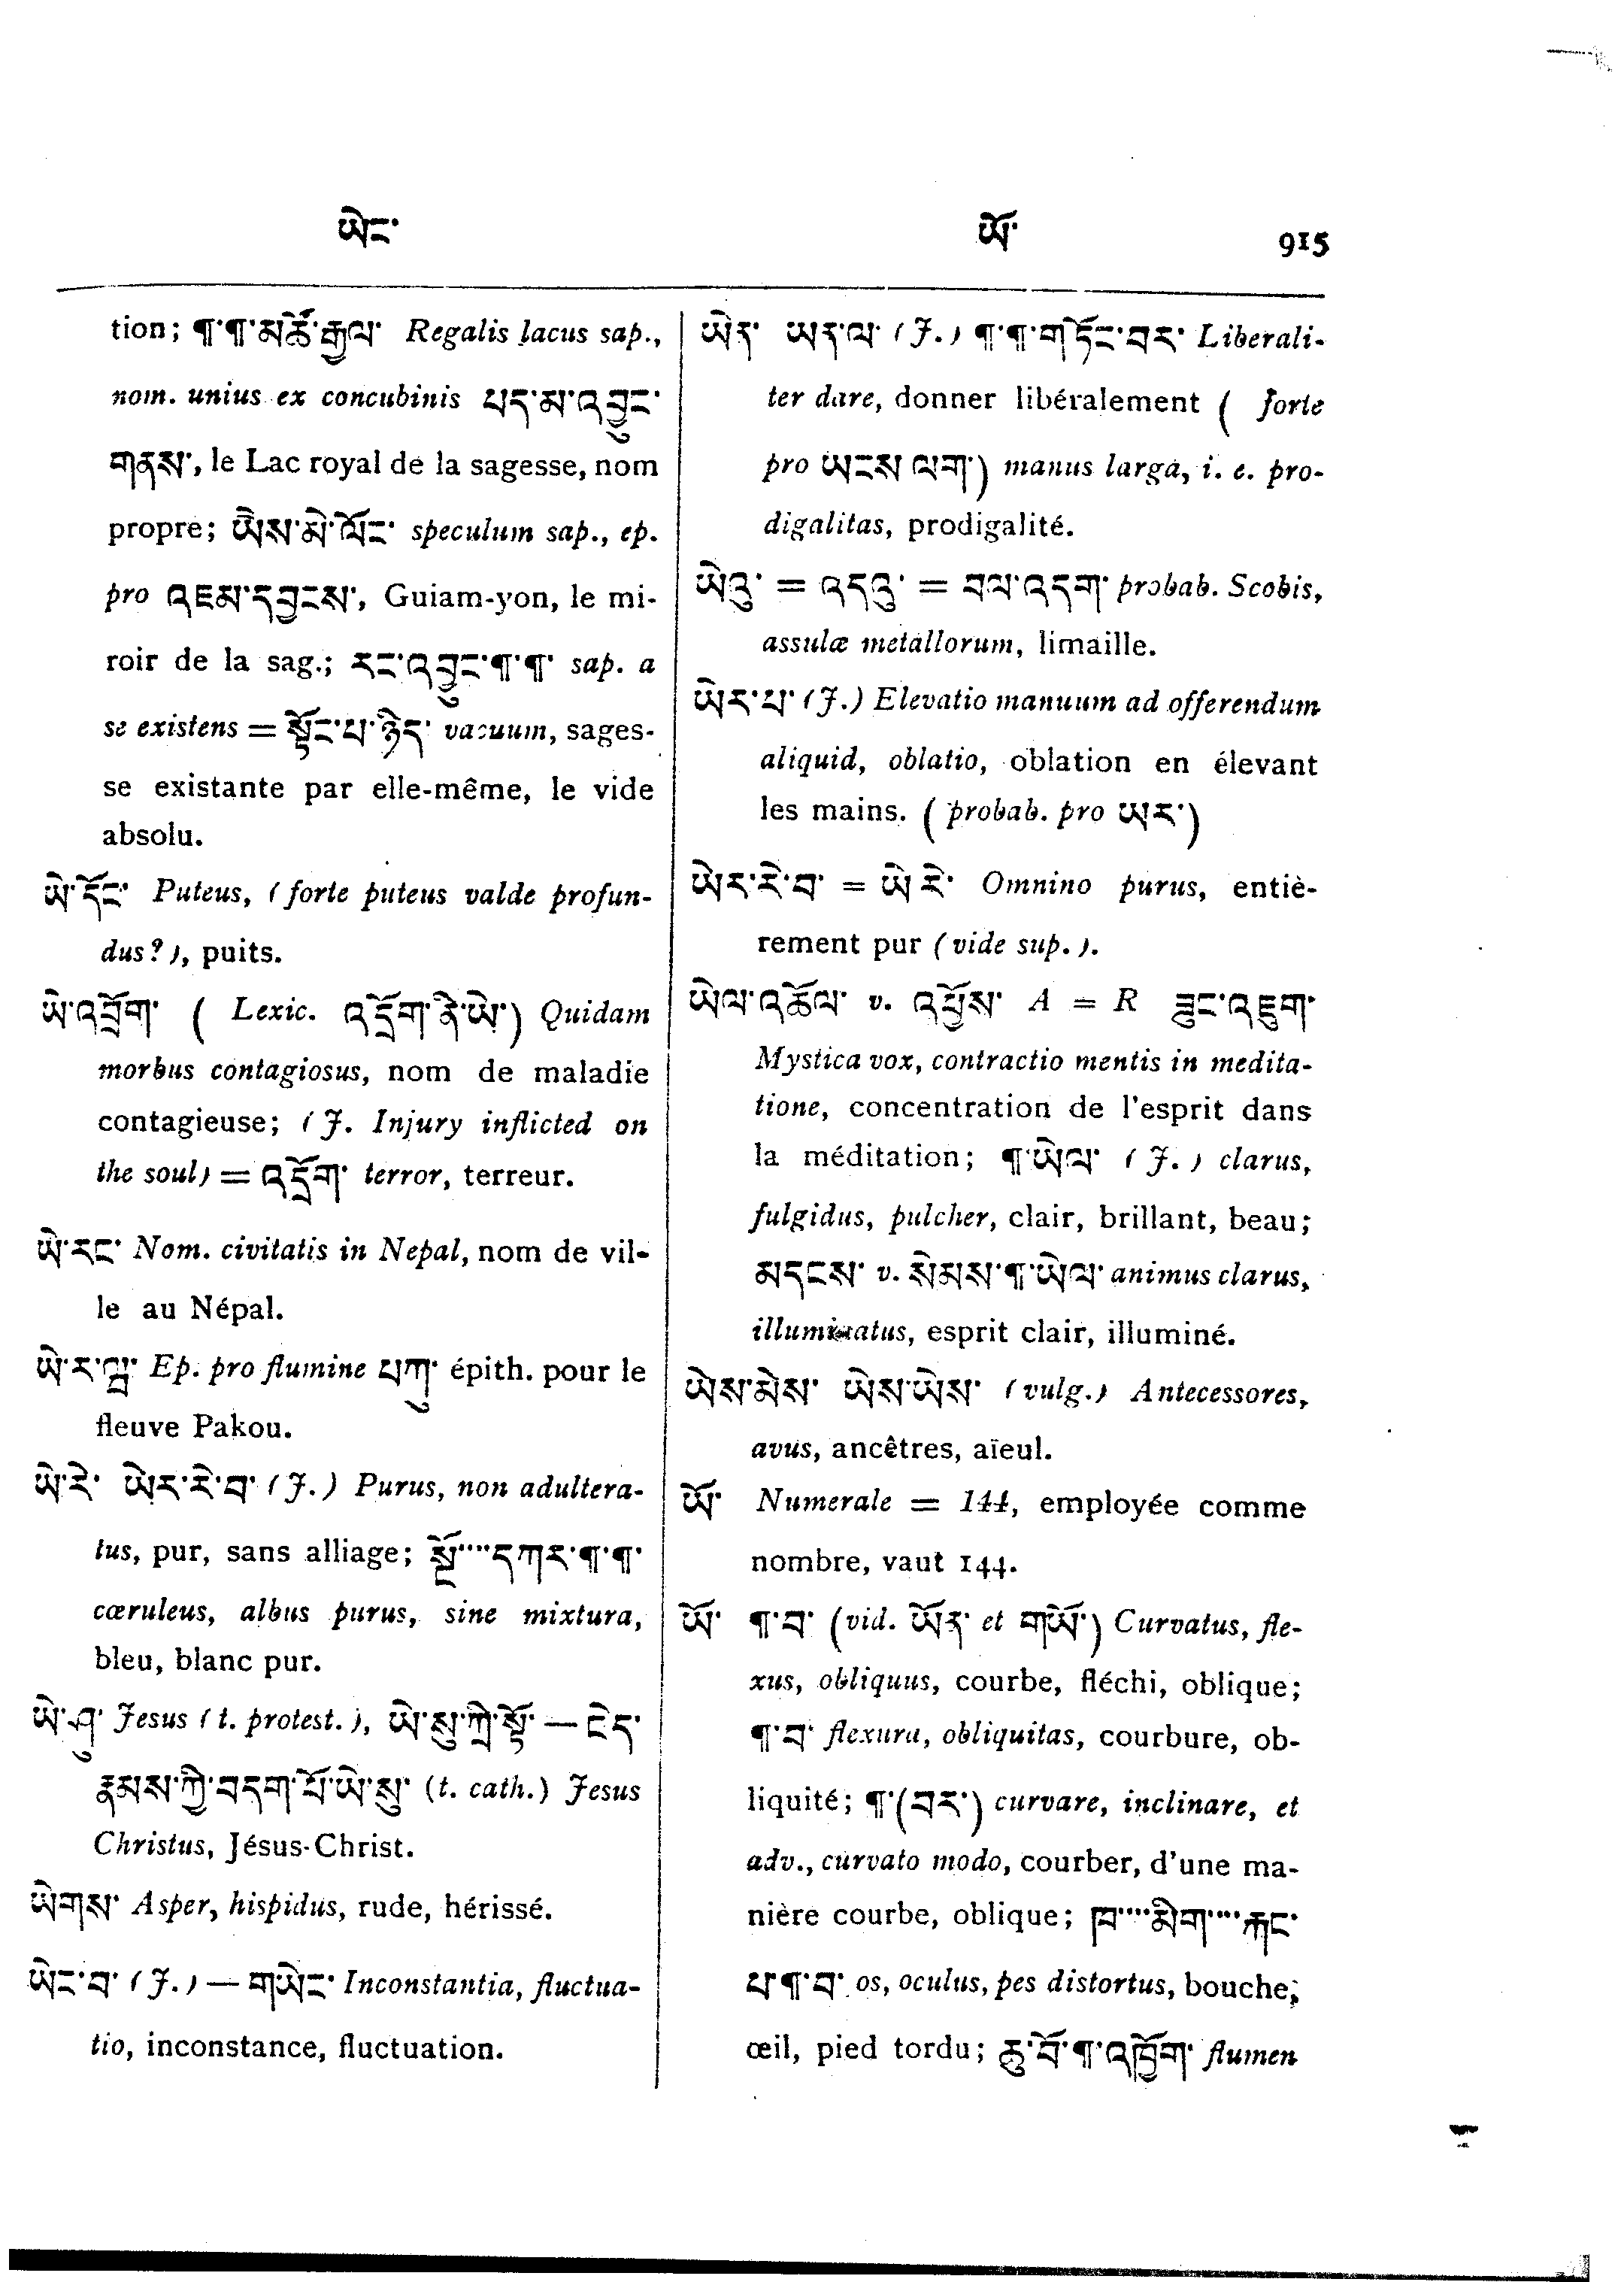 ཡེང་
ཡོ་
915
tion; ¶་¶་མཚོ་རྒྱལ་ Regalis lacus sap.,
nom. unius ex concubinis པད་མ་འབྱུང་
གནས་, le Lac royal de la sagesse, nom
propre; ཡེས་མེ་ལོང་ speculum sap., ep.
pro འཇམ་དབྱངས་, Guiam-yon, le mi-
roir de la sag.; རང་འབྱུང་¶་¶་ sap. a
se existens = སྟོང་པ་ཉིད་ vacuum, sages-
se existante par elle-même, le vide
absolu.
ཡེ་དོང་ Puteus, (forte puteus valde profun-
dus?), puits.
ཡེ་འབྲོག་ ( Lexic. འདྲོག་ནེ་ཡེ་) Quidam
morbus contagiosus, nom de maladie
contagieuse; (J. Injury inflicted on
the soul) = འདྲོག་ terror, terreur.
ཡེ་རང་ Nom. civitatis in Nepal, nom de vil-
le au Népal.
ཡེ་ར་ Ep. pro flumine པཀུ་ épith. pour le
fleuve Pakou.
ཡེ་རེ་ ཡེར་རེ་བ་ (J.) Purus, non adultera-
tus, pur, sans alliage; སྔོ་····དཀར་¶་¶་
cœruleus, albus purus, sine mixtura,
bleu, blanc pur.
ཡེ་ཤུ་ Jesus (t. protest.), ཡེ་སུ་ཀྲི་སྟོ་ — ངེད་
རྣམས་ཀྱི་བདག་པོ་ཡེ་སུ་ (t. cath.) Jesus
Christus, Jésus-Christ.
ཡེགས་ Asper, hispidus, rude, hérissé.
ཡེང་བ་ (J.) — གཡེང་ Inconstantia, fluctua-
tio, inconstance, fluctuation.
ཡེན་ ཡན་ལ་ (J.) ¶་¶་གཏོང་བར་ Liberali-
ter dare, donner libéralement ( forte
pro ཡངས ལག་) manus larga, i. e. pro-
digalitas, prodigalité.
ཡེའུ་ = འདའུ་ = བལ་འདག་ probab. Scobis,
assulæ metallorum, limaille.
ཡེར་པ་ (J.) Elevatio manuum ad offerendum
aliquid, oblatio, oblation en élevant
les mains. ( probab. pro ཡར་)
ཡེར་རེ་བ་ = ཡེ་རེ་ Omnino purus, entiè-
rement pur (vide sup.).
ཡེལ་འཚོལ་ v. འཕྱོས་ A = R ཟུང་འཇུག་
Mystica vox, contractio mentis in medita-
tione, concentration de l'esprit dans
la méditation; ¶་ཡེལ་ (J.) clarus,
fulgidus, pulcher, clair, brillant, beau;
མདངས་ v. སེམས་¶་ཡེལ་ animus clarus,
illuminatus, esprit clair, illuminé.
ཡེས་མེས་ ཡེས་ཡེས་ (vulg.) Antecessores,
avus, ancêtres, aïeul.
ཡོ་ Numerale = 144, employée comme
nombre, vaut 144.
ཡོ་ ¶་བ་ (vid. ཡོན་ et གཡོ་) Curvatus, fle-
xus, obliquus, courbe, fléchi, oblique;
¶་བ་ flexura, obliquitas, courbure, ob-
liquité; ¶་(བར་) curvare, inclinare, et
adv., curvato modo, courber, d'une ma-
nière courbe, oblique; ཁ་····མིག་····རྐང་
པ་¶་བ་ os, oculus, pes distortus, bouche,
œil, pied tordu; ཆུ་བོ་¶་འཁྱོག་ flumen